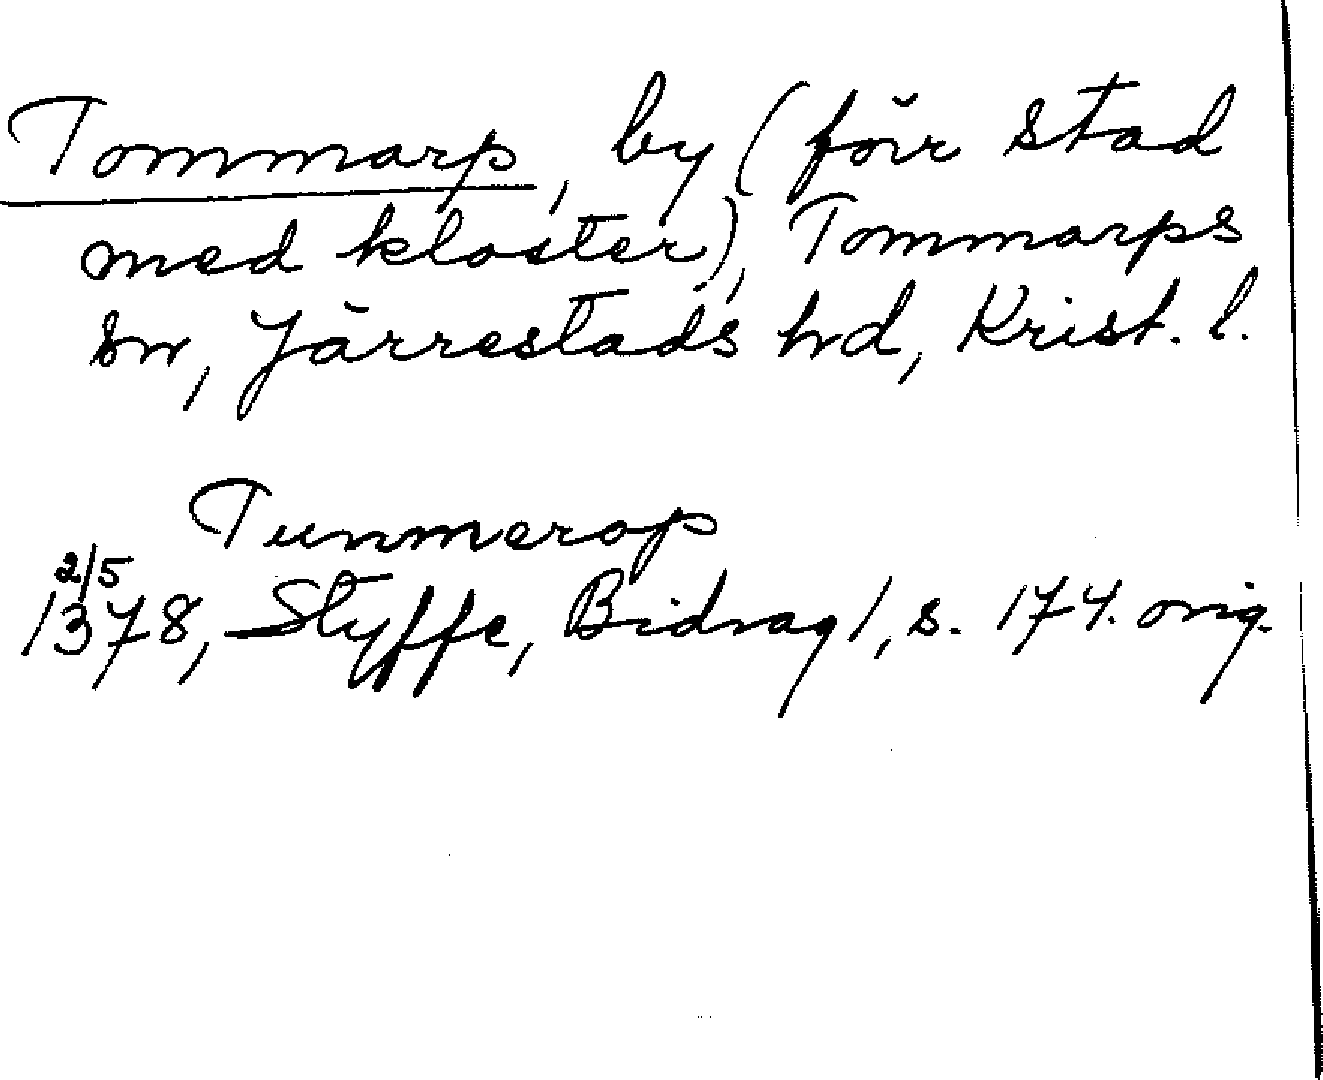 Tommarp, by (förr stad
med kloster), Tommarps
sn, Järrestads hd, Krist. l.
Tunmerop
2/5
1378, Styffe, Bidrag 1, s. 174. orig.